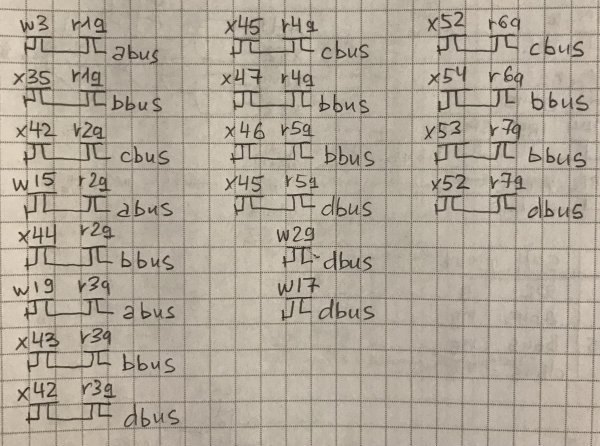 w3 r1g abus
x35 r1g bbus
x42 r2g cbus
w15 r2g abus
x44 r2g bbus
w19 r3g abus
x43 r3g bbus
x42 r3g dbus
x45 r4g cbus
x47 r4g bbus
x46 r5g bbus
x45 r5g dbus
w29 dbus
w17 dbus
x52 r6g cbus
x54 r6g bbus
x53 r7g bbus
x52 r7g dbus